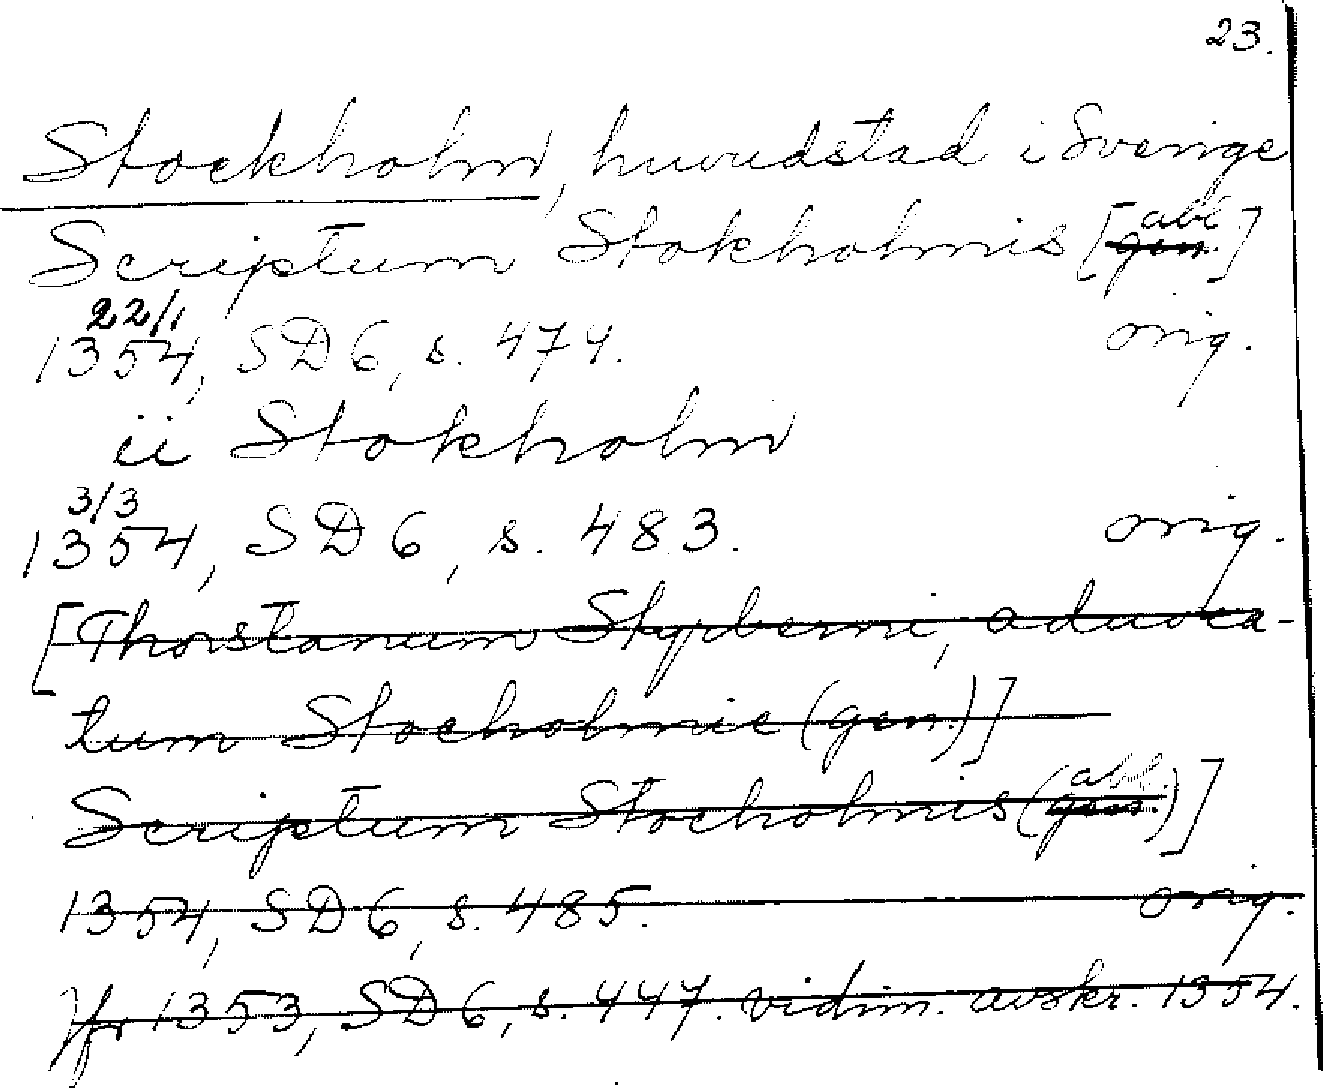 23.
Stockholm, huvudstad i Sverige
Scriptum Stokholmis [gen. abl.]
22/1
1354, SD 6, s. 474. orig.
ii Stokholm
3/3
1354, SD 6, s. 483. orig.
[Thorstanum Styrberni, aduoca-
tum Stocholmie (gen.)]
Scriptum Stocholmis (gen. abl.)]
1354, SD 6, s. 485. orig.
Jfr 1353, SD 6, s. 447. vidim. avskr. 1354.